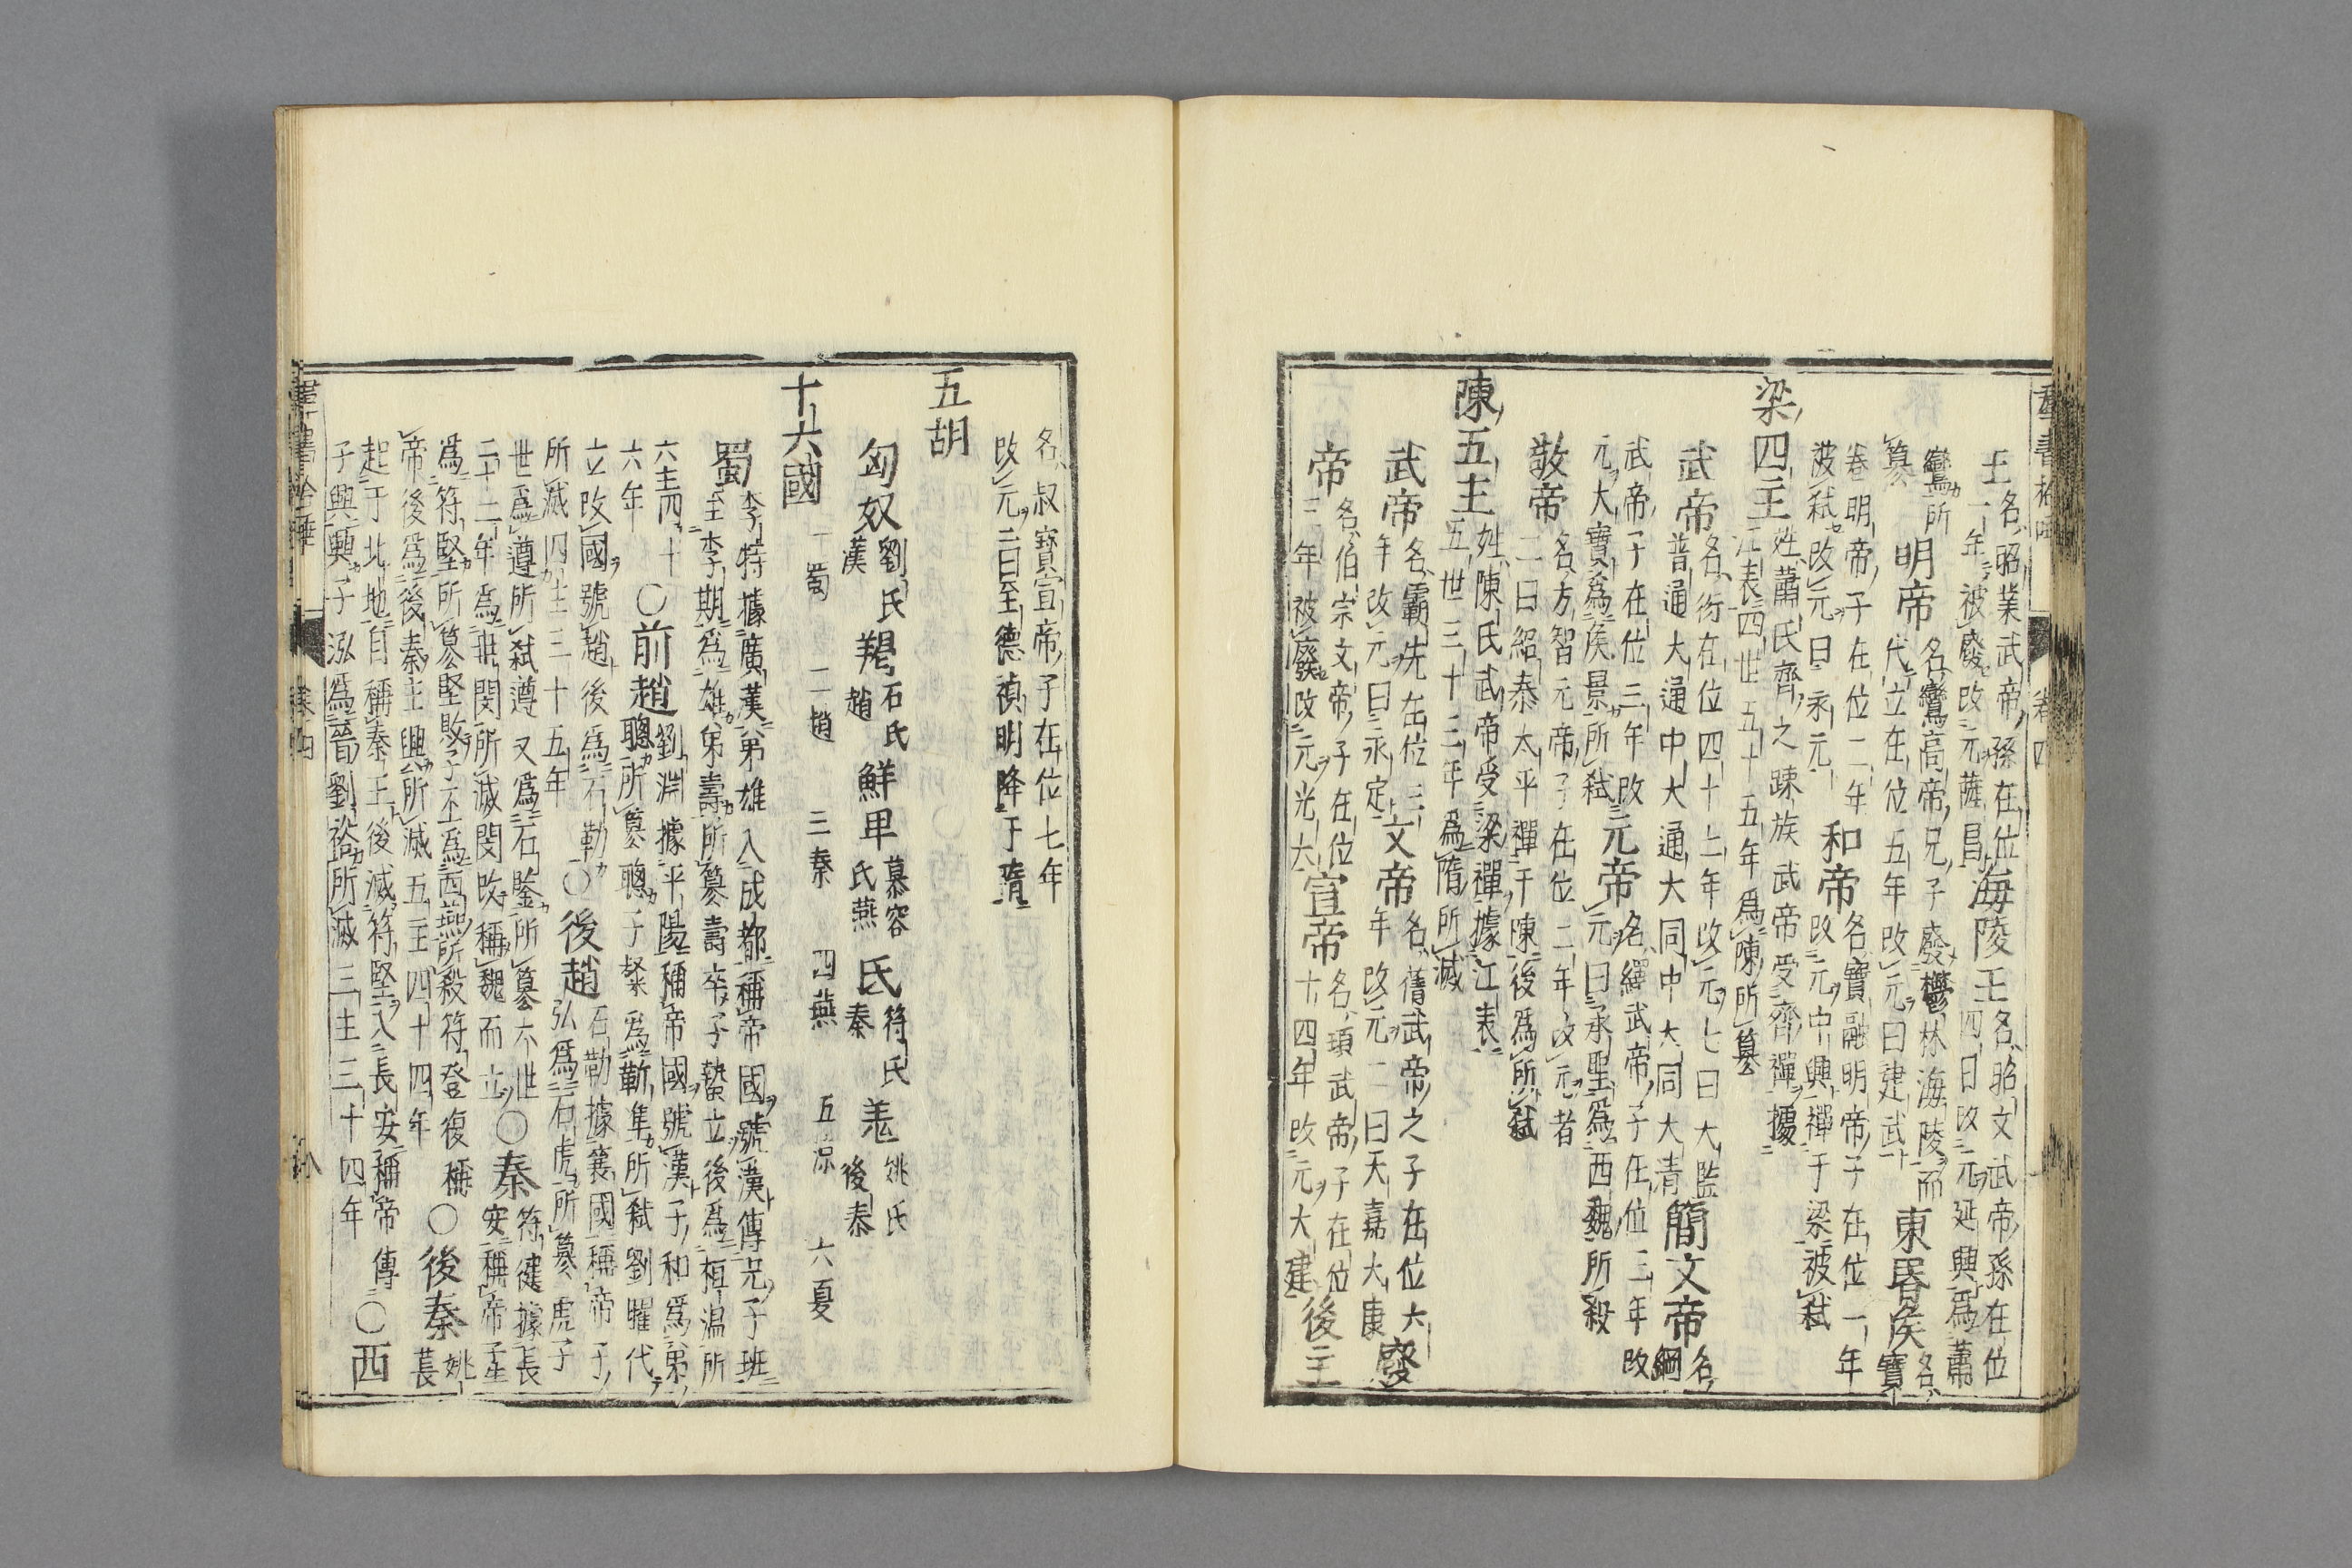 王名昭業武帝孫在位
一年被廢改元薩昌
海陵王名昭文武帝孫在位
四日改元延興爲蕭
鸞所
篡
明帝名鸞高帝兄子廢鬱林海陵而
代立在位五年改元曰建武
東昏侯名寶
卷明帝子在位二年
被弒改元曰永元
和帝名寶融明帝子在位一年
改元中興禪于梁被弒
梁四主姓蕭氏齊之踈族武帝受齊禪據
江表四世五十五年爲陳所篡
武帝名衍在位四十七年改元七曰大監
普通大通中大通大同中大同大清
簡文帝名綱
武帝子在位三年改
元大寶爲侯景所弒
元帝名繹武帝子在位三年改
元曰承聖爲西魏所殺
敬帝名方智元帝子在位二年改元者
二曰紹泰太平禪于陳後爲所弒
陳五主姓陳氏武帝受梁禪據江表
五世三十三年爲隋所滅
武帝名霸先在位三
年改元曰永定
文帝名蒨武帝之子在位六
年改元二曰天嘉大康
廢
帝名伯宗文帝子在位
三年被廢改元光大
宣帝名頊武帝子在位
十四年改元大建
後主
名叔寶宣帝子在位七年
改元二曰至德禎明降于隋
五胡
匈奴劉氏
漢
羯石氏
趙
鮮卑慕容
氏燕
氐符氏
秦
羌姚氏
後秦
十六國
一蜀 二趙 三秦 四燕 五涼 六夏
蜀李特據廣漢第雄入成都稱帝國號漢傳兄子班
至李期爲雄弟壽所篡壽卒子勢立後爲桓溫所
六主四十
六年
〇前趙劉淵據平陽稱帝國號漢子和爲弟
聰所篡聰子粲爲靳隼所弒劉曜代
立改國號趙後爲石勒
所滅四主三十五年
〇後趙石勒據襄國稱帝子
弘爲石虎所篡虎子
世爲遵所弒遵又爲石鑒所篡六世
二十二年爲冉閔所滅閔改稱魏而立
〇秦符健據長
安稱帝子生
爲符堅所篡堅敗子丕爲西燕所殺符登復稱
帝後爲後秦主興所滅五主四十四年
〇後秦姚
萇
起于北地自稱秦王後滅符堅入長安稱帝傳
子興興子泓爲晉劉裕所滅三主三十四年
〇西